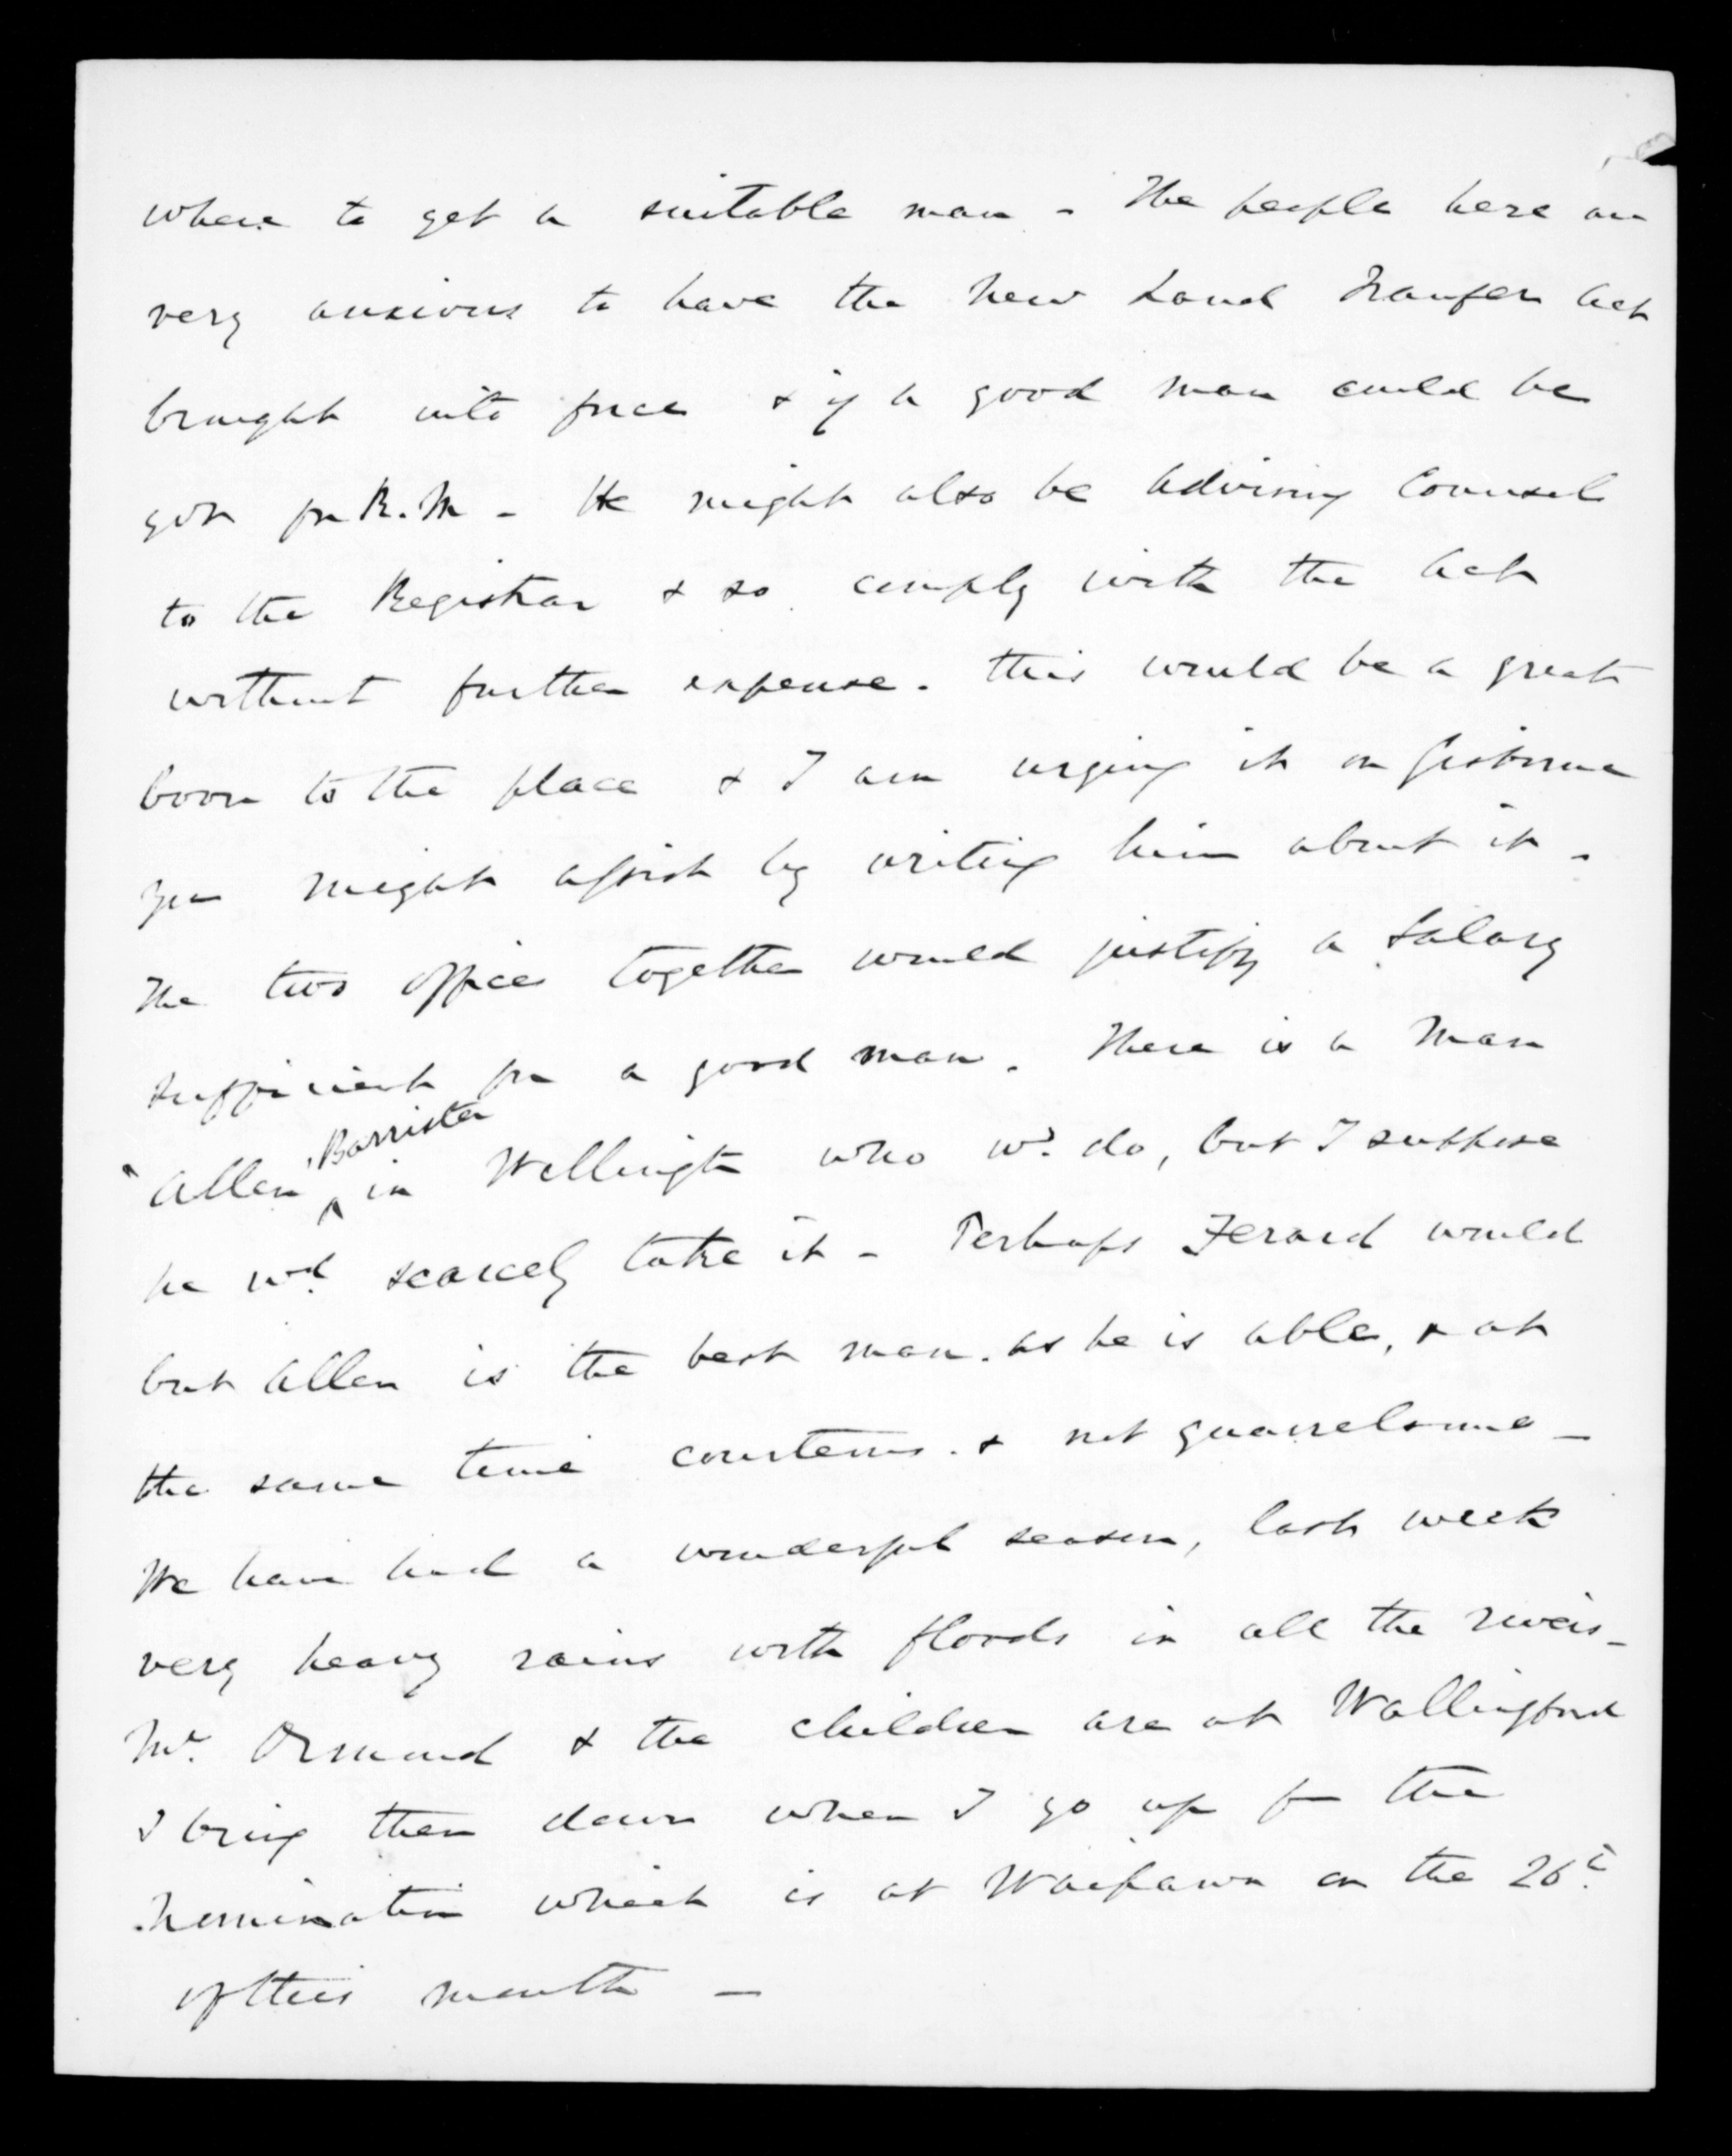 where to get a suitable man - The people here are
very anxious to have the New Land Transfer Act
brought into force & if a good man could be
got for R.M - He might also be Advising Counsel
to the Registrar & so comply with the Act
without further expense. this would be a great
boon to the place & I am urging it on Gisborne
you might assist by writing him about it -
The two offices together would justify a Salary
sufficient for a good man. There is a Man
"Allen, Barrister in Wellington who wd. do, but I suppose
he wd. scarcely take it - Perhaps Ferard would
but Allen is the best man. as he is able, & at
the same time courteous. & not quarrelsome -
We have had a wonderful season, last week
very heavy rains with floods in all the rivers -
Mrs. Ormond & the children are at Wallingford
I bring them down when I go up for the
Nomination which is at Waipawa on the 26th.
of this month -